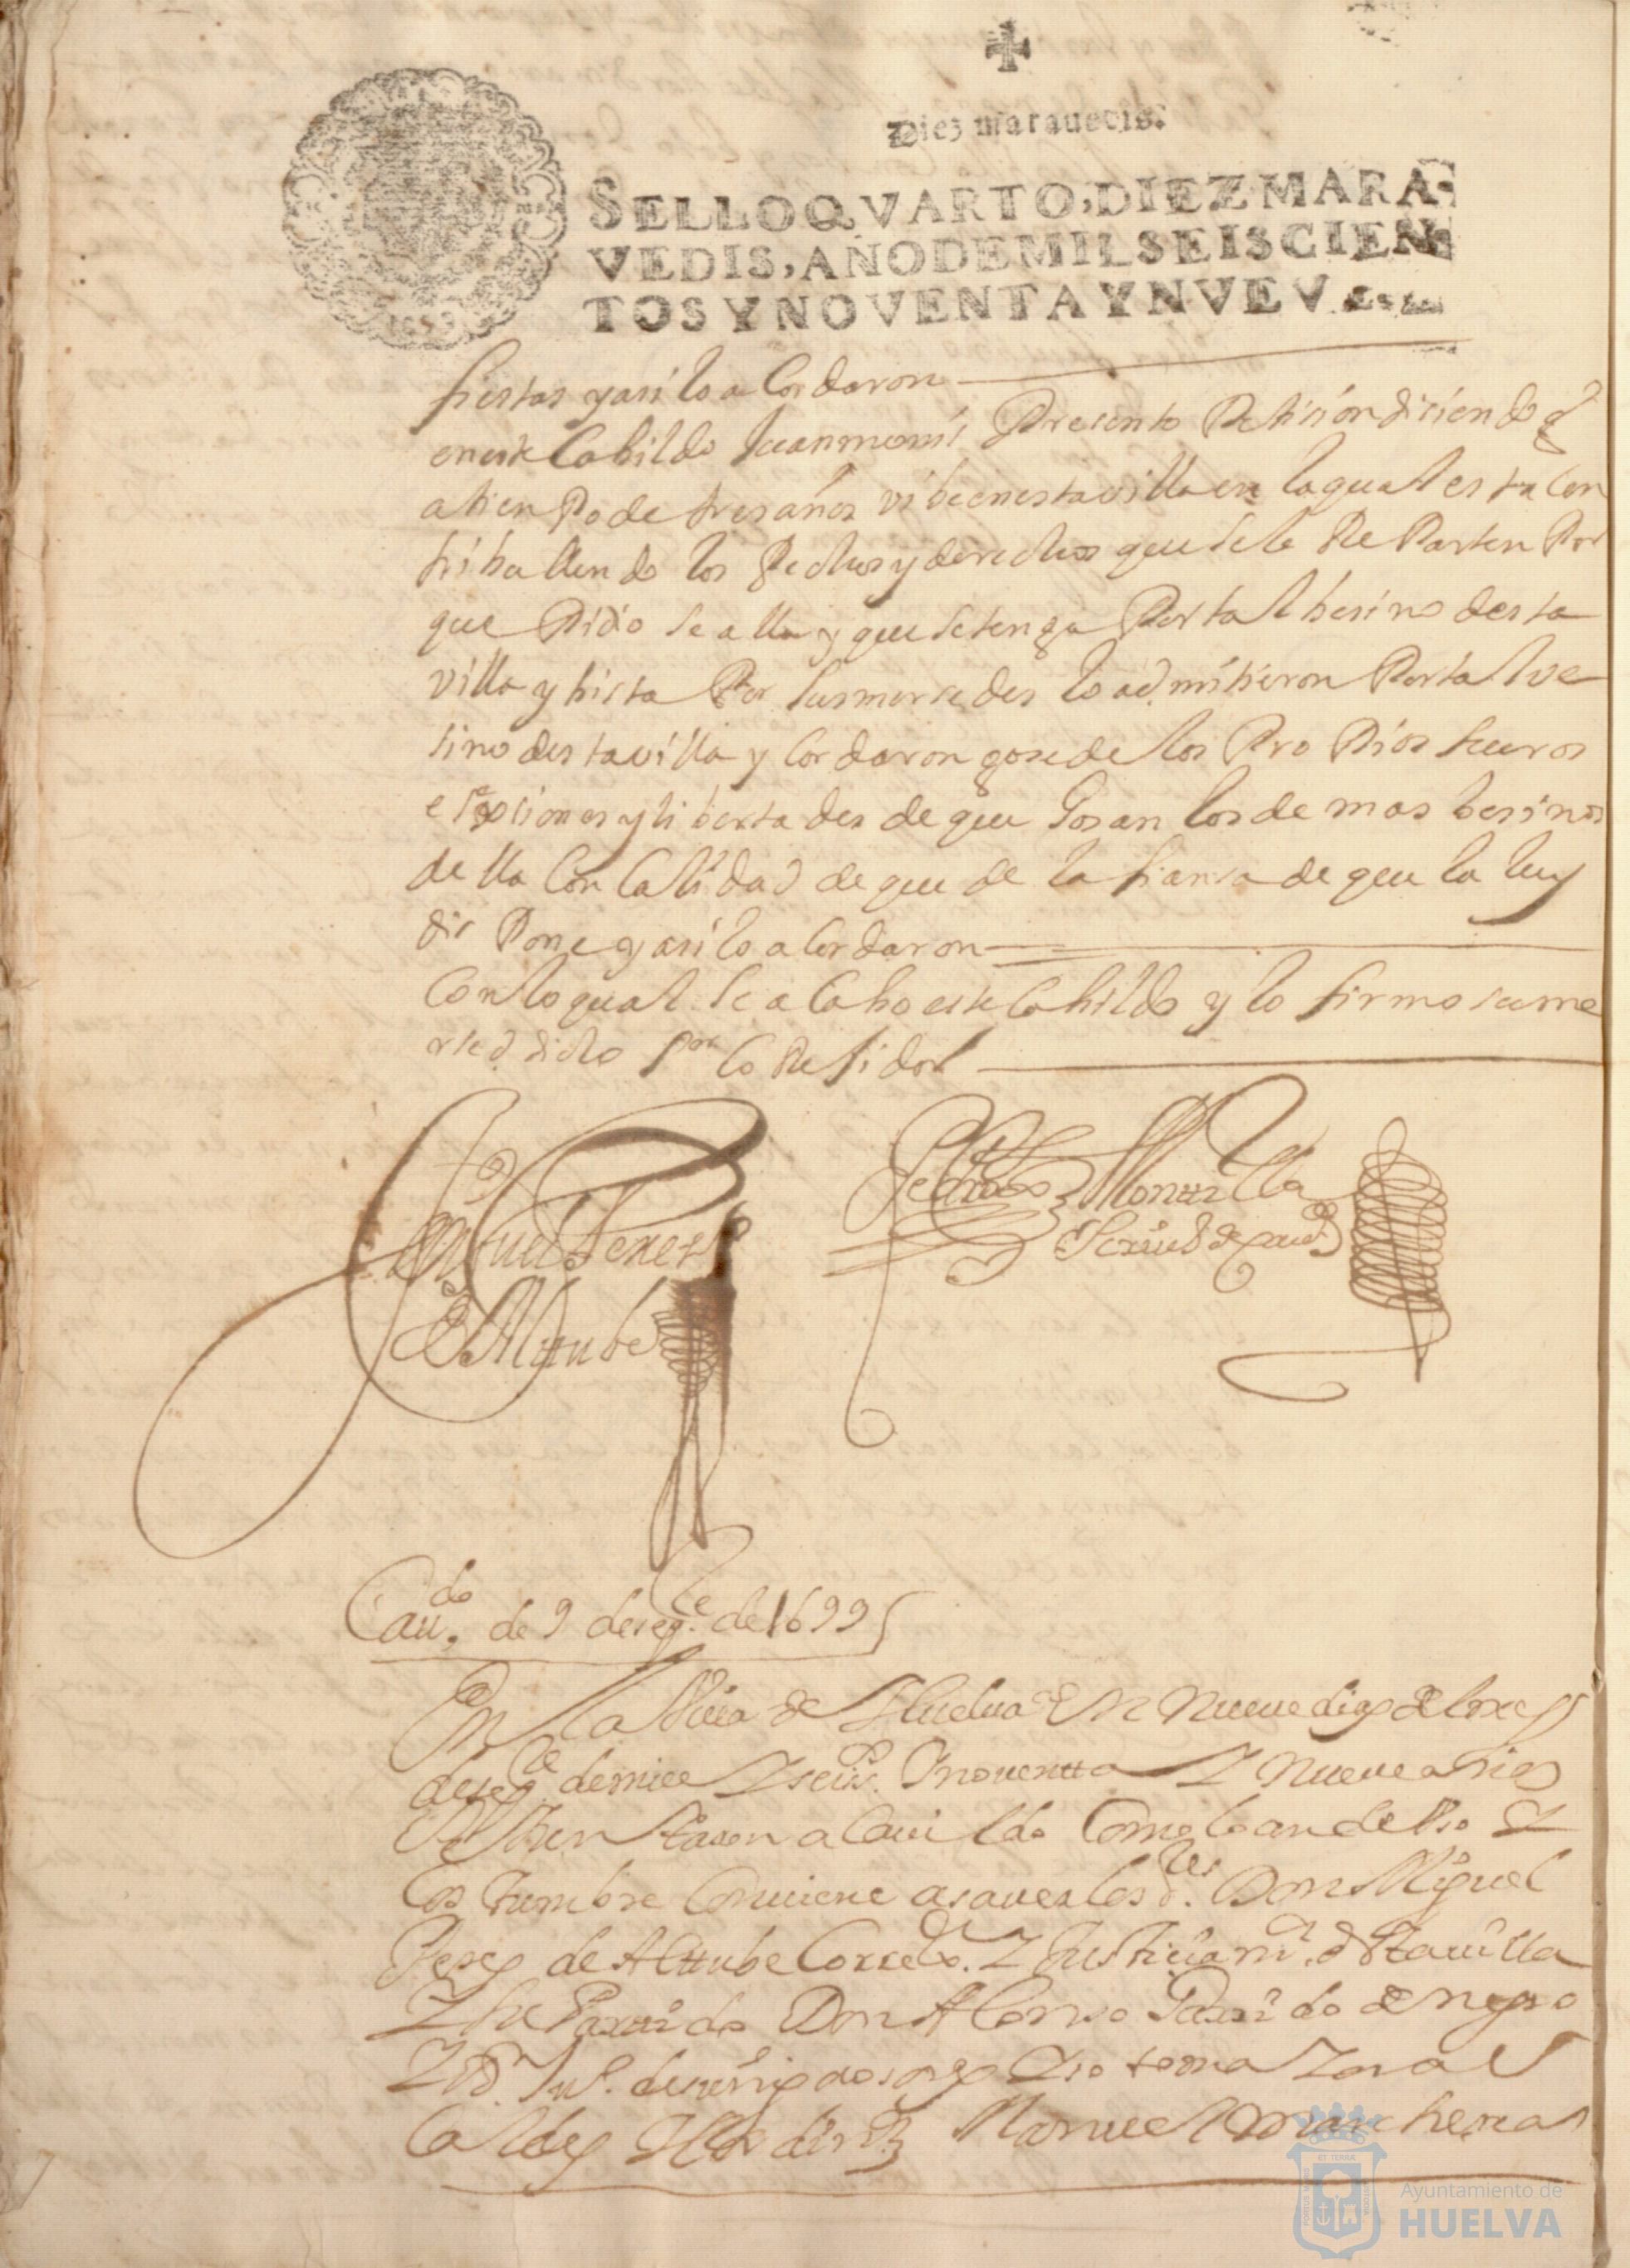 Diez marauedis.
SELLO QVARTO, DIEZ MARA-
VEDIS, AÑO DE MIL SEISCIEN
TOS Y NOVENTA Y NVEVE
1699
fiestas y asi lo acordaron
en este Cabildo Juan Presento Petision disiendo q
a tienpo de tres años vibe en esta villa en la qual esta con
tribullendo los Pechos y derechos que se le ReParten Por
que Pidio se alla y que se tenga Por tal besino desta
villa y bista Por sus mersedes lo admitieron Por tal ve
sino desta villa y cordaron gose de los ProPios fueros
y libertades de que Gosan los demas besinos
della Con Calidad de que de la fiansa de que la ley
disPone y asi lo acordaron
Con lo qual se acabo este Cabildo y lo firmo su me
rsed dicho Sor CoRexidor
Miguel Perez
de Alttube
Pedro Monttilla
Scriuº de caudº
Cauº. de 9 de sepe. de 1699
En la Villa de Huelua En nueue dias del mes
de sepe. de mill Y seisº. Y nouentta Y nueue años
Se Juntaron a Cauildo Como lo an de Vso Y
Costumbre Conuiene a sauer los sres. Don Miguel
Perez de Alttube Correxor. Y Justicia mr. desta uilla
Y su Parttido Don Alonso Garrido de negro
Y Dn. Juº.
Caldes Manuel marchena
Ayuntamiento de
HUELVA